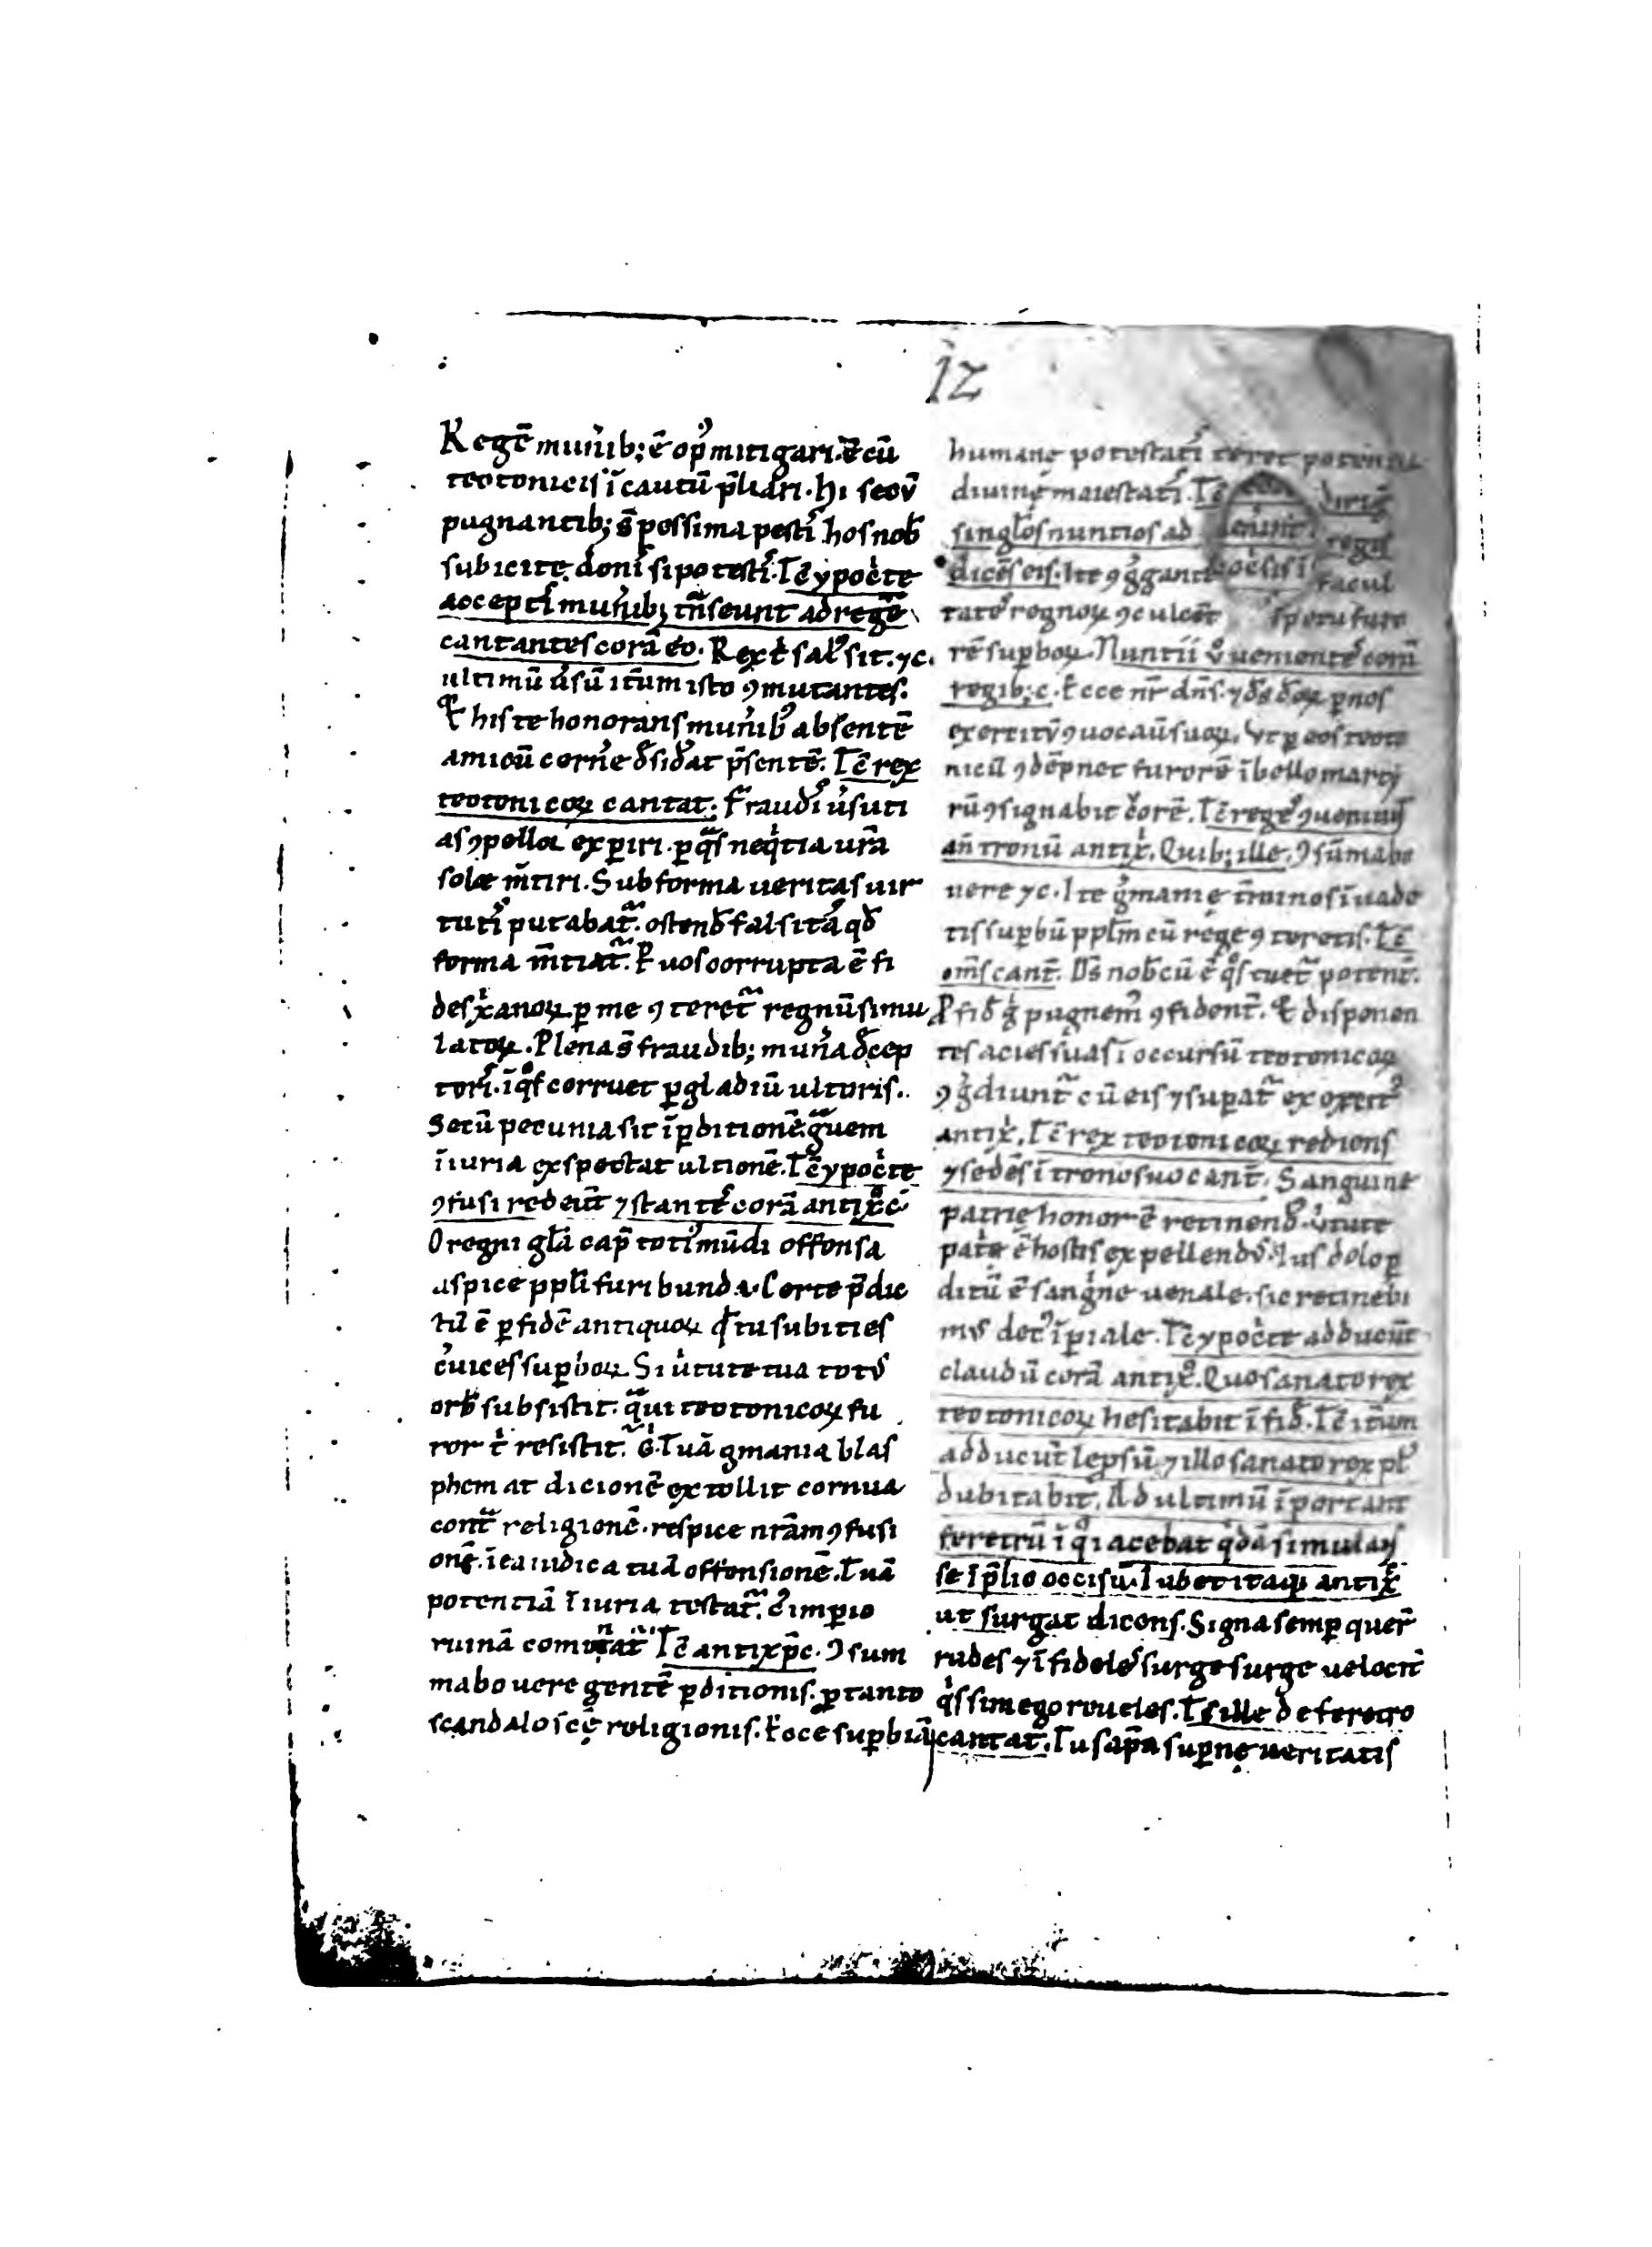 12
Regē mun̄ib; ē op᷒ mitigari. ē cū
teotonicis ī cautū p̄liari. hi seoū
pugnantib; s̄ pessima pesti᷒ hos nob̄
subicite doni᷒ si potesti᷒. Tc̄ ypoc̍te
acceptis mun̍ib; tn̄seunt ad regē
cantantes corā eo. Rex t̍ sal᷒ sit. ⁊c.
ultimū ūsū it̄um isto ꝯmutantes.
Et histe honorans mun̍ib᷒ absentē
amicū cerne d̄sid̄at p̄sentē. Tc̄ rex
teotonicoꝝ cantat. Fraudi᷒ ūsuti
as ꝯpellor exꝑiri. ꝑ q̄s neq̍tia ur̄a
solæ m̄tiri. Sub forma ueritas uir
tuti᷒ putabat᷑. ostend̄ falsitas qd̄
forma m̄tiat᷑. Ꝑ uos corrupta ē fi
des x̍anoꝝ. ꝑ me ꝯteret᷑ regnū simu
latoꝝ. Plena s̄ fraudib; mun̍a d̄cep
tori᷒. ī q̊s corruet ꝑ gladiū ultoris.
Secū pecunia sit īꝑditionē. g̃uem
īiuria exspectat ultionē. Tc̄ ypoc̍te
ꝯfusi redeūt ⁊ stantes corā antix̊ c̄
O regni gl̄a cap̄ toti᷒ mūdi offensa
aspice ppl̄i furibunda. Certe p̄dic
tū ē ꝑ fidē antiquoꝝ q̊ tu subities
c̍uices suꝑboꝝ. Si u̍tute tua tot᷒
orb̄ subsistit. q̃ ui teotonicoꝝ fu
ror t̍ resistit. G̍. Tuā g̍mania blas
phemat dicionē extollit cornua
cont̄ religionē. respice nr̄ām ꝯfusi
onē. ī ea iudica tuā offensionē. Tuā
potentiā īiuria testat᷑. c᷒ imꝑio
ruinā comītat᷑ Tc̄ antixp̄c. ꝯsum
mabo uere gentē ꝑditionis. ꝑ tanto
scandalo scę̄ religionis. Ecce suꝑbiā
humanę potestati᷒ teret potentia
diuinę maiestati᷒. Tc̄ dirig᷒
singl̄os nuntios ad reges
dicēs eis. Ite ꝯg̍gantes facul
tates regnoꝝ ꝯculcent īpetu furo
rē suꝑboꝝ. Nuntii ū uementes corā
regib; c̄. Ecce nr̄ dn̄s ⁊ d̄s d̄oꝝ ꝑ nos
exercitū ꝯuocaū suoꝝ. Ut ꝑ eos teoto
nicū ꝯdēpnet furorē ī bello marty
rū ꝯsignabit c̍orē. Tc̄ reges ꝯueniūt
an̄ tronū antix̍. Quib; ille. ꝯsūmabo
uere ⁊c. Ite g̍manie t̄minos īuade
tis suꝑbū ppl̄m cū rege ꝯteretis. Tc̄
om̄s cant̄. D̄s nob̄cū ē q̊s tuet᷑ potent̄.
P fid̄ g̍ pugnem᷒ ꝯfident̄. Et disponen
tes acies suas ī occursū teotonicoꝝ
ꝯg̍diunt᷑ cū eis ⁊ suꝑat᷑ ex̍cit᷒
antix̍. Tc̄ rex teotonicoꝝ rediens
⁊ sedēs ī trono suo cant̄. Sanguine
patrię honor ē retinend᷒. u̍tute
pat̍e ē hostis expellend᷒. Ius dolo ꝑ
ditū ē sang̍ne uenale. sic retinebi
m᷒ dec᷒ īꝑiale. Tc̄ ypoc̍te adducūt
claudū corā antix̊. Quo sanato rex
teotonicoꝝ hesitabit ī fid̄. Tc̄ it̄um
adducūt lep̍sū. ⁊ illo sanato rex pl᷒
dubitabit. Ad ultimū īportant
feretrū ī q̊ iacebat q̍dā simulans
se īp̄lio occisū. Iubet itaq᷒ antix̍
ut surgat dicens. Signa semꝑ quer̄
rudes ⁊ īfideles surge surge uelocit̄
q̍s sim ego reueles. Tc̄ ille de feretro
cantat. Tu sap̄a suꝑnę ueritatis